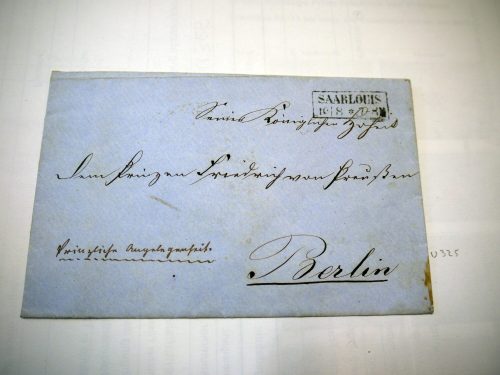 SAARLOUIS
Seiner Königlichen Hoheit
Dem Prinzen Friedrich von Preußen
Prinzliche Angelegenheit.
Berlin
U 325